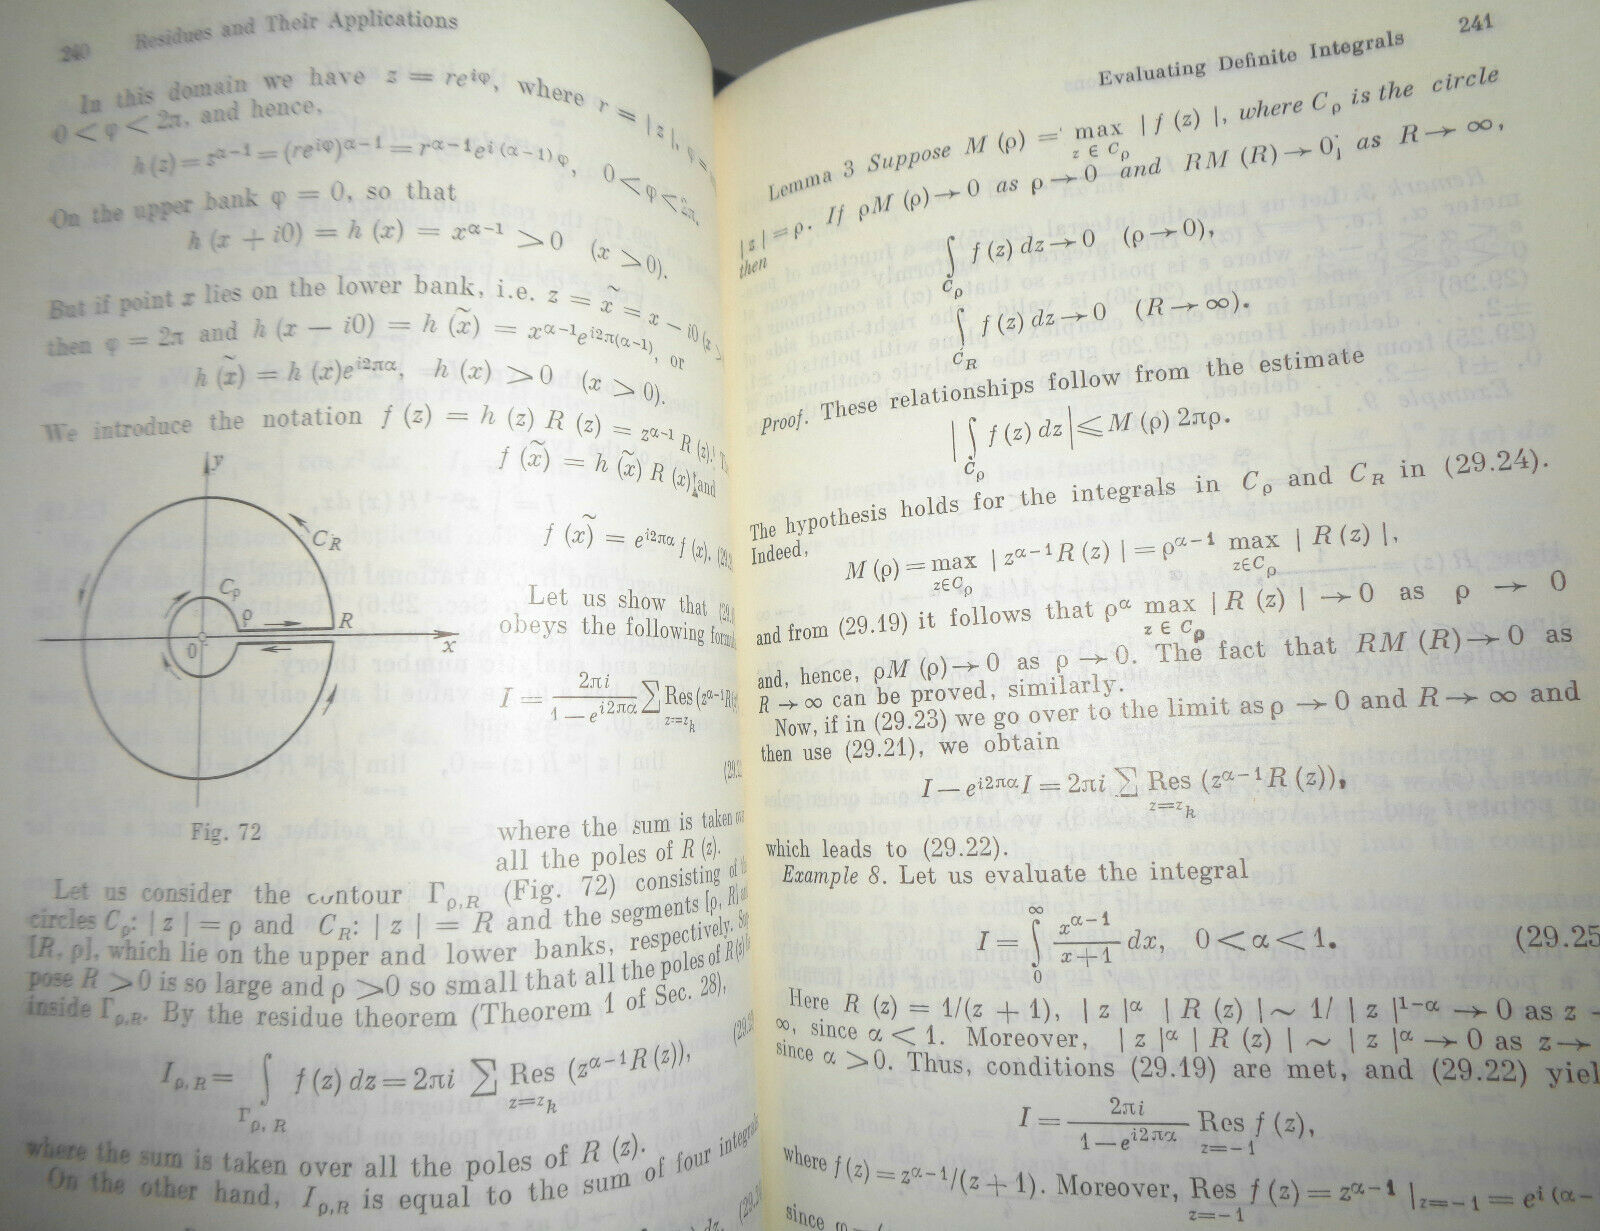 240 Residues and Their Applications
In this domain we have z = re^{iφ}, where r = | z |, φ =
0 < φ < 2π, and hence,
h (z) = z^{α−1} = (re^{iφ})^{α−1} = r^{α−1}e^{i (α−1) φ}, 0 < φ < 2π.
On the upper bank φ = 0, so that
h (x + i0) = h (x) = x^{α−1} > 0 (x > 0).
But if point x lies on the lower bank, i.e. z = x̃ = x − i0 (x >
then φ = 2π and h (x − i0) = h (x̃) = x^{α−1}e^{i2π(α−1)}, or
h (x̃) = h (x)e^{i2πα}, h (x) > 0 (x > 0).
We introduce the notation f (z) = h (z) R (z) = z^{α−1} R (z).
f (x̃) = h (x̃) R (x) and
f (x̃) = e^{i2πα} f (x).
y
C_R
C_ρ
ρ
R
0
x
Fig. 72
Let us show that
obeys the following
I = \frac{2πi}{1 − e^{i2πα}} ∑ Res_{z=z_k} (z^{α−1}R
where the sum is taken
all the poles of R (z).
Let us consider the contour Γ_{ρ,R} (Fig. 72) consisting of
circles C_ρ: | z | = ρ and C_R: | z | = R and the segments [ρ, R]
[R, ρ], which lie on the upper and lower banks, respectively.
pose R > 0 is so large and ρ > 0 so small that all the poles of R (z)
inside Γ_{ρ,R}. By the residue theorem (Theorem 1 of Sec. 28),
I_{ρ, R} = ∫_{Γ_{ρ, R}} f (z) dz = 2πi ∑ Res_{z=z_k} (z^{α−1}R (z)),
where the sum is taken over all the poles of R (z).
On the other hand, I_{ρ,R} is equal to the sum of four integrals
Evaluating Definite Integrals 241
Lemma 3 Suppose M (ρ) = max_{z ∈ C_ρ} | f (z) |, where C_ρ is the circle
| z | = ρ. If ρM (ρ) → 0 as ρ → 0 and RM (R) → 0 as R → ∞,
then
∫_{C_ρ} f (z) dz → 0 (ρ → 0),
∫_{C_R} f (z) dz → 0 (R → ∞).
Proof. These relationships follow from the estimate
| ∫_{C_ρ} f (z) dz | ⩽ M (ρ) 2πρ.
The hypothesis holds for the integrals in C_ρ and C_R in (29.24).
Indeed,
M (ρ) = max_{z∈C_ρ} | z^{α−1}R (z) | = ρ^{α−1} max_{z∈C_ρ} | R (z) |,
and from (29.19) it follows that ρ^α max_{z ∈ C_ρ} | R (z) | → 0 as ρ → 0
and, hence, ρM (ρ) → 0 as ρ → 0. The fact that RM (R) → 0 as
R → ∞ can be proved, similarly.
Now, if in (29.23) we go over to the limit as ρ → 0 and R → ∞ and
then use (29.21), we obtain
I − e^{i2πα}I = 2πi ∑ Res_{z=z_k} (z^{α−1}R (z)),
which leads to (29.22).
Example 8. Let us evaluate the integral
I = ∫_0^∞ \frac{x^{α−1}}{x+1} dx, 0 < α < 1. (29.25
Here R (z) = 1/(z + 1), | z |^α | R (z) | ~ 1/ | z |^{1−α} → 0 as z
∞, since α < 1. Moreover, | z |^α | R (z) | ~ | z |^α → 0 as z →
since α > 0. Thus, conditions (29.19) are met, and (29.22) yiel
I = \frac{2πi}{1−e^{i2πα}} Res_{z=−1} f (z),
where f (z) = z^{α−1}/(z + 1). Moreover, Res_{z=−1} f (z) = z^{α−1} |_{z=−1} = e^{i (α−
since